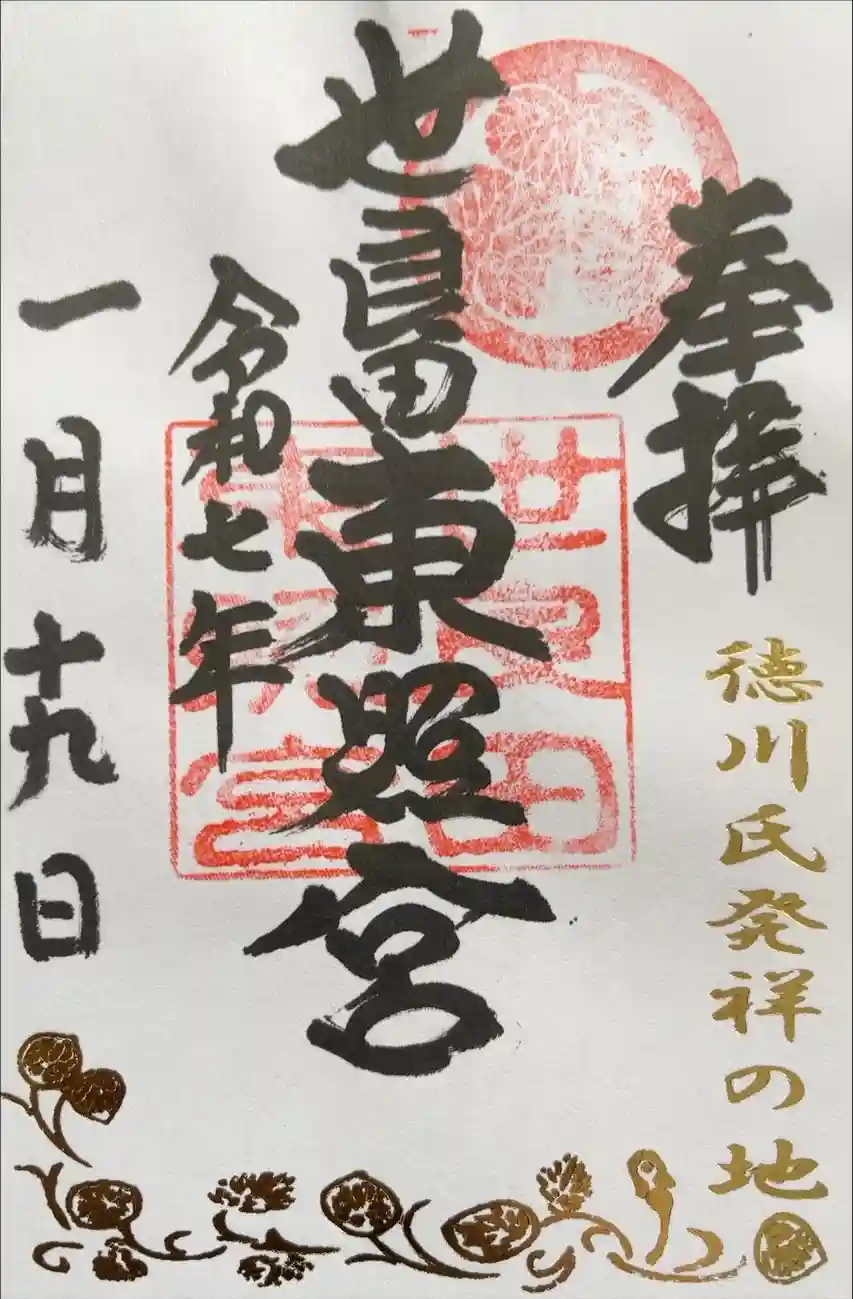 奉拝
徳川氏発祥の地
世良田東照宮
令和七年
一月十九日
世良田
東照宮